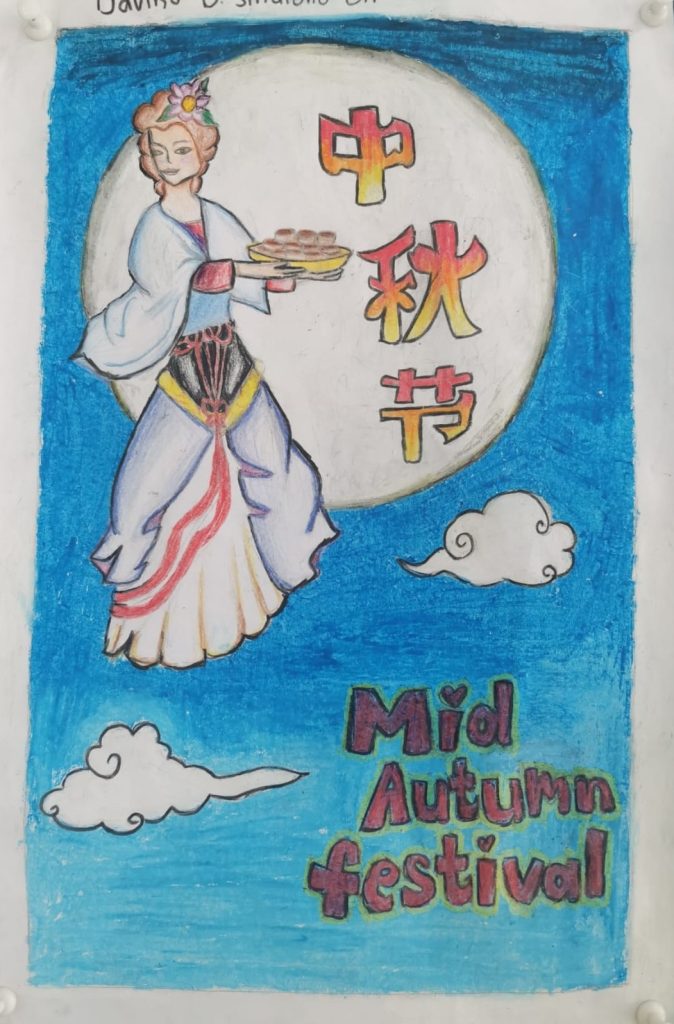 中
秋
节
Mid
Autumn
festival